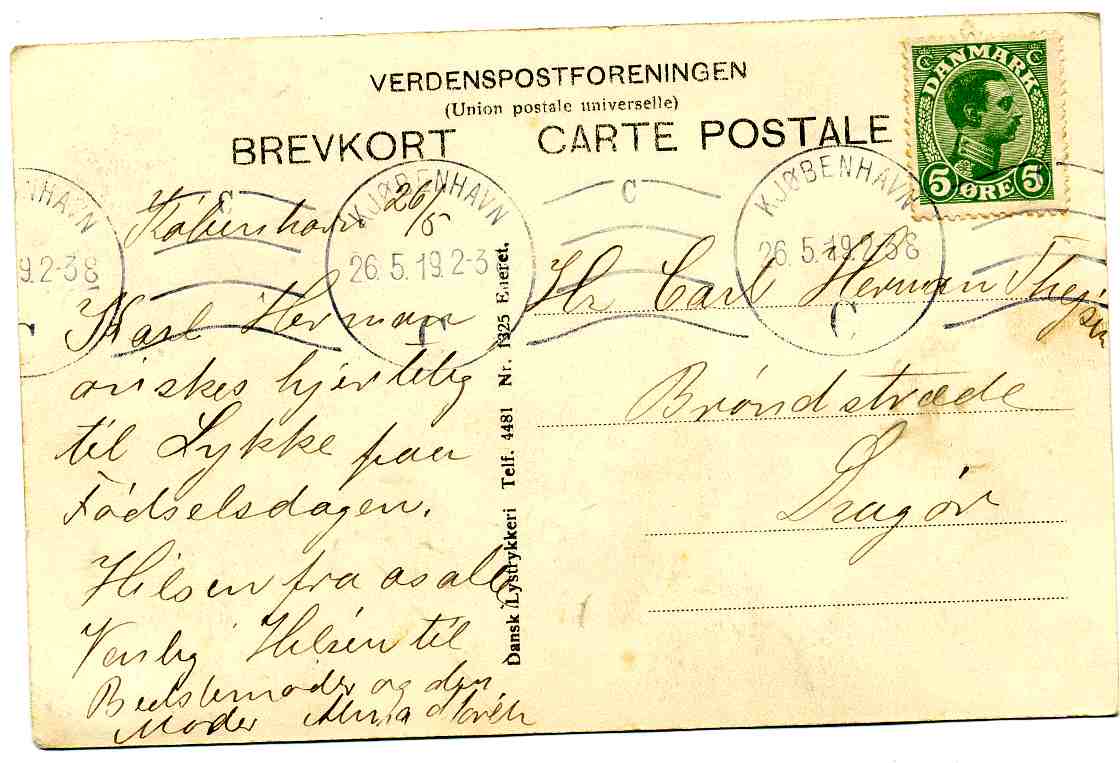 VERDENSPOSTFORENINGEN
(Union postale universelle)
BREVKORT CARTE POSTALE
DANMARK
5 ØRE 5
KJØBENHAVN
26.5.19.2-3
C
KJØBENHAVN
26.5.19.2-3 E
C
København 26/5
Karl Herman
ønskes hjertelig
til Lykke paa
Fødselsdagen.
Hilsen fra os alle
Venlig Hilsen til
Bedstemoder og din
Moder Anna
Dansk Lystrykkeri Telf. 4481 Nr. 1325 Eneret.
Hr Carl Herman
Brøndstræde
Dragør